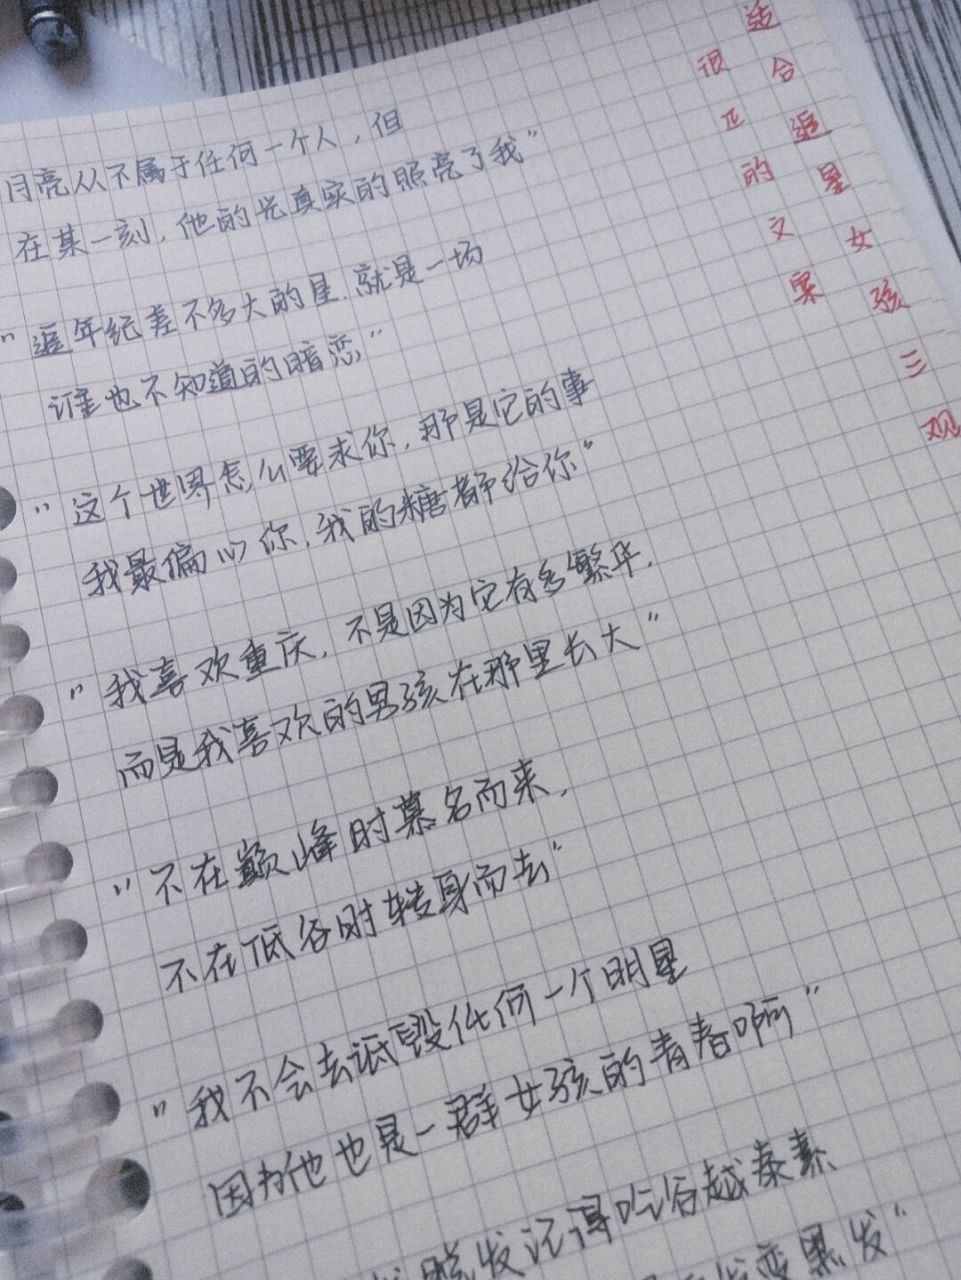 适合追星女孩三观
很正的文案
月亮从不属于任何一个人，但
在某一刻，他的光真实的照亮了我"
"追年纪差不多大的星，就是一场
谁也不知道的暗恋"
"这个世界怎么要求你，那是它的事
我最偏心你，我的糖都给你"
"我喜欢重庆，不是因为它有多繁华，
而是我喜欢的男孩在那里长大"
"不在巅峰时慕名而来，
不在低谷时转身而去"
"我不会去诋毁任何一个明星
因为他也是一群女孩的青春啊"
脱发记得吃谷越泰素
变黑发"